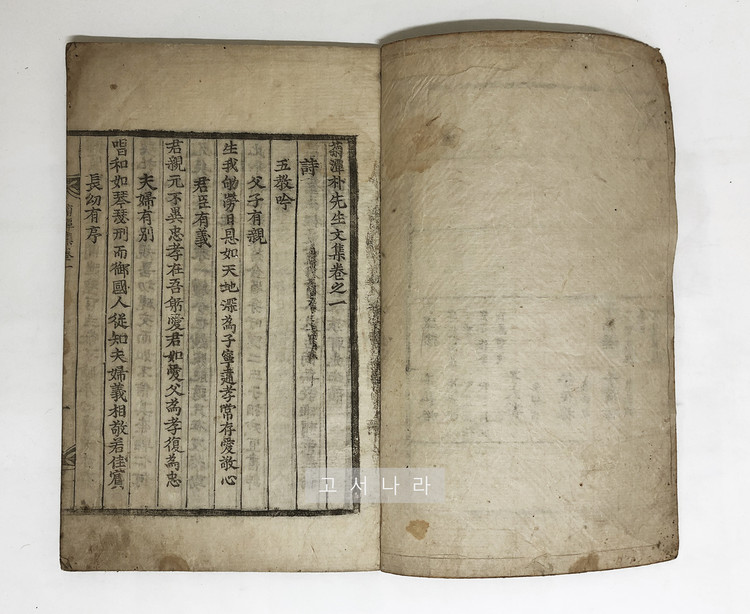 菊潭朴先生文集卷之一
詩
五敎吟
父子有親
生我劬勞日恩如天地深為子寧違孝常存愛敬心
君臣有義
君親元不異忠孝在吾躬愛君如愛父為孝復為忠
夫婦有別
唱和如琴瑟刑而御國人從知夫婦義相敬若佳賓
長幼有序
고서나라